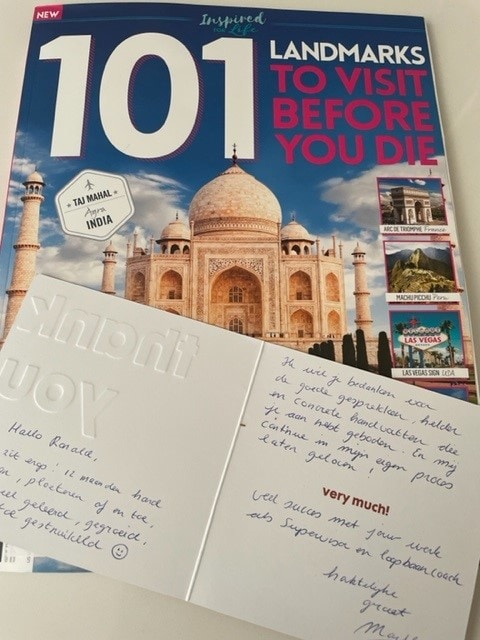 NEW
Inspired
FOR Life
101
LANDMARKS
TO VISIT
BEFORE
YOU DIE
TAJ MAHAL
Agra
INDIA
ARC DE TRIOMPHE France
MACHU PICCHU Peru
WELCOME
LAS VEGAS
LAS VEGAS SIGN USA
Thank
you
Hallo Ronald,
zit erop: 12 maanden hard
, ploeteren af en toe,
geleerd, gegroeid,
gestruikeld
Ik wil je bedanken voor
de goede gesprekken, helder
en concrete handvatten die
je aan hebt geboden. En mij
continue in mijn eigen proces
laten geloven!
very much!
Veel succes met jouw werk
als Supervisor en loopbaancoach
hartelijke
groet